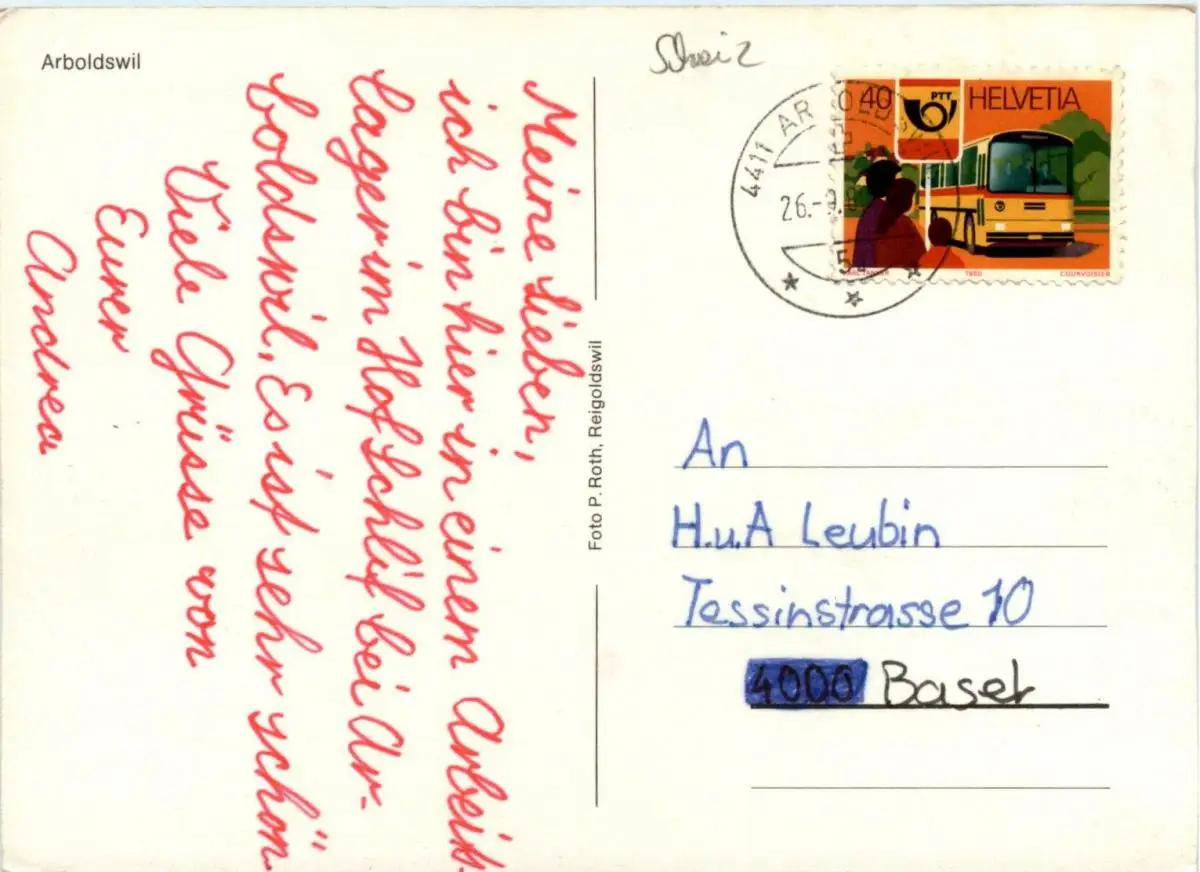 Arboldswil
Schweiz
Meine Lieben,
ich bin hier in einem Arbeits
lager im Hof Schlif bei Ar-
boldswil. Es ist sehr schön
Viele Grüsse von
Eurer
Andrea
Foto P. Roth, Reigoldswil
40 PTT HELVETIA
1980 COURVOISIER
4411 AR
26.-9.
An
H.u.A Leubin
Tessinstrasse 10
4000 Basel